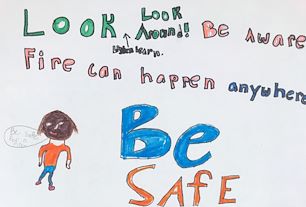 Look Look Around! Be Aware
Learn.
Fire can happen anywhere
Be
SAFE
Be safe